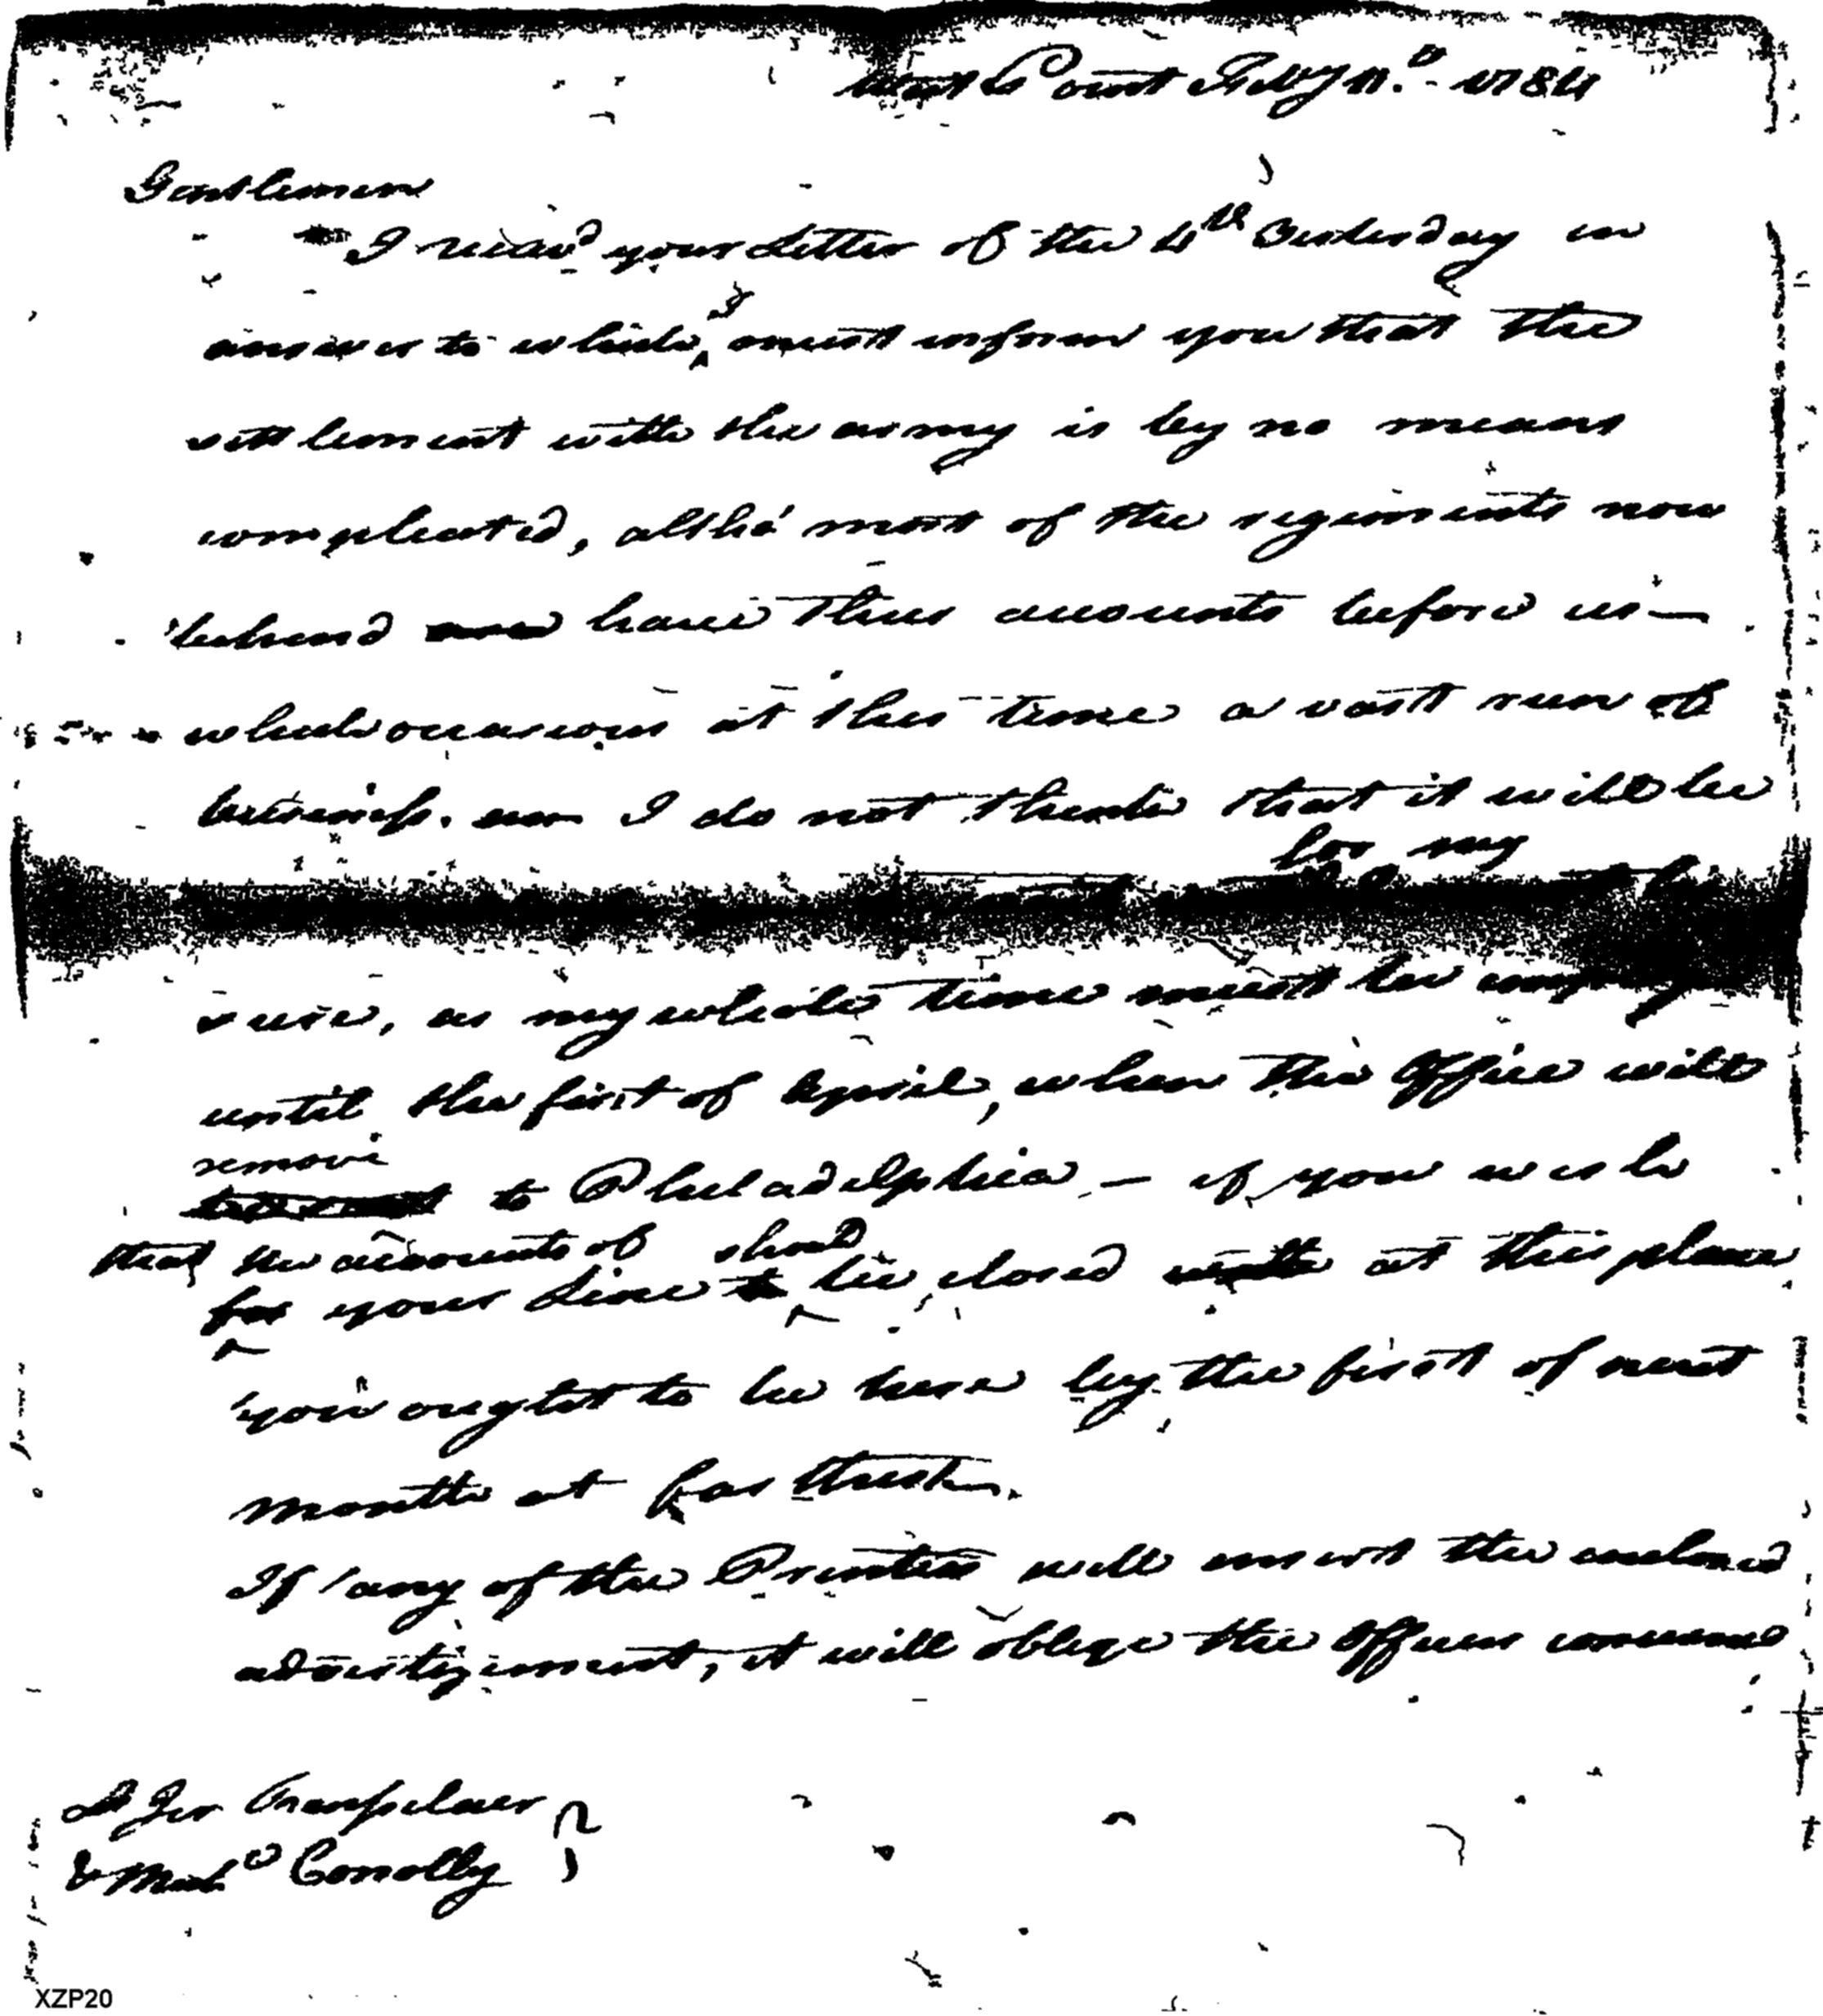 West Point Feby 11.th 1784
Gentlemen
I reced your Letter of the 4th Yesterday in
answer to which, I must inform you that the
settlement with the army is by no means
compleated, altho' most of the regiments now
behind have their accounts before us—
which occasions at this time a vast run of
business. I do not think that it will be
for my
as my whole time must be
until the first of April, when the Office will
remove
to Philadelphia — if you wish
that the accounts of shoud
for your Line to be closed at this place
you ought to be here by the first of next
month at farthest.
If any of the Printers will insert the enclosed
advertizement, it will oblige the Officers concerned
Conolly
XZP20